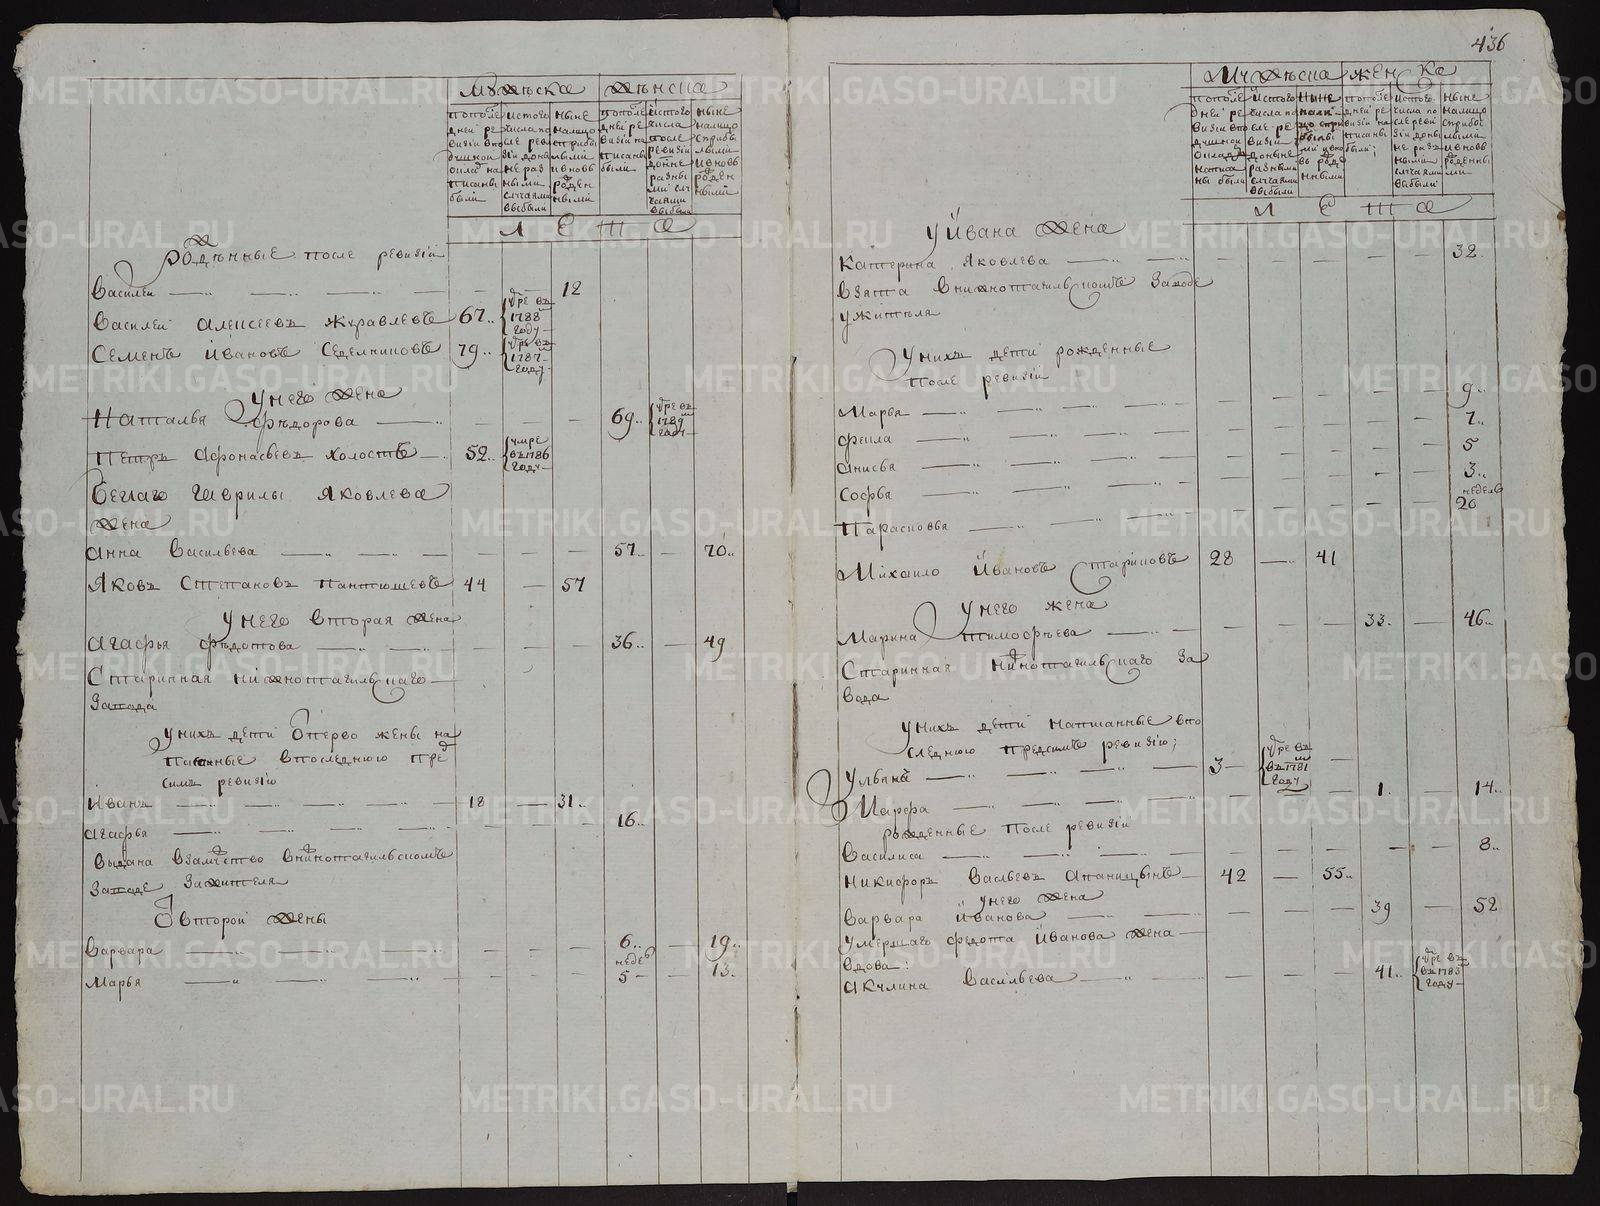 436
Мужеска женска
пополе дней ре визiи впо душной окладъ на писаны были
изтого числа по сле реви зiи доны не раз ными случаями выбыли
ныне налицо сприбы лыми ивновь рожден ными
пополе дней ре визiи на писаны были
изтого числа после ревизiи доныне разны ми слу чаями выбыли
ныне налицо сприбы лыми ивновь рожден ными
Л Е Т А
рожденные после ревизiи
Василей 12
Василей Алексеевъ Журавлевъ 67 умре въ 1788 году
Семенъ Ивановъ Седелниковъ 79 умре въ 1787 году
Унего жена
Наталья Федорова 69 умре въ 1789 году
Петръ Афонасьевъ холостъ 52 умре въ 1786 году
Беглаго Гаврилы Яковлева
жена
Анна Васильева 57 70
Яковъ Степановъ Пантюшевъ 44 57
Унего вторая жена
Агафья Федотова 36 49
Старинная нижнотагильскаго
завода
Унихъ дети отперво жены на
писанные впоследнюю пре
симъ ревизiю
Иванъ 18 31
Агафья 16
выдана взамужство внижнотагильскомъ
заводе зажителя
Овторой жены
Варвара 6 19
Марья недель 5 13
Мужеска женска
пополе дней ре визiи впо душной окладъ написа ны были
изтого числа по сле ре визiи доныне разными случаями выбыли
ныне нали цо сприбылы ми ивно вь рожде нными
пополе дней ре визiи на писаны были;
изтого числа по сле реви зiи доны не разъ ными случаями выбыли
ныне налицо сприбы лыми ивновь рожденны ми
Л Е Т А
У Ивана жена
Катерина Яковлева 32
взята внижнотагильскомъ заводе
ужителя
Унихъ дети рожденные
после ревизiи
Марья 9
Фекла 7
Анисья 5
Софья 3
Парасковья недель 20
Михайло Ивановъ Стариковъ 28 41
Унего жена
Марина Тимофеева 33 46
Старинная нижнотагильскаго за
вода
Унихъ дети написанные впо
следнюю предсимъ ревизiю;
Ульянъ 3 умре въ 1781 году
Марфа 1 14
рожденные после ревизiи
Василиса 8
Никифоръ Васильевъ Апаницынъ 42 55
Унего жена
Варвара Иванова 39 52
Умершаго Федота Иванова жена
вдова:
Акулина Васильева 41 умре въ 1783 году
METRIKI.GASO-URAL.RU